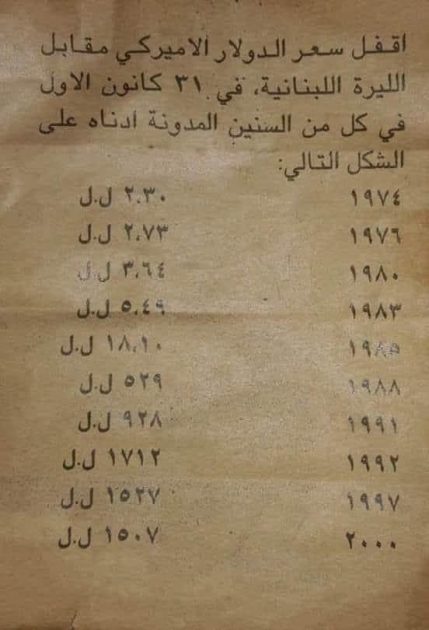 اقفل سعر الدولار الاميركي مقابل
الليرة اللبنانية، في ٣١ كانون الاول
في كل من السنين المدونة ادناه على
الشكل التالي:
١٩٧٤ ٢،٣٠ ل.ل
١٩٧٦ ٢،٧٣ ل.ل
١٩٨٠ ٣،٦٤ ل.ل
١٩٨٣ ٥،٤٩ ل.ل
١٩٨٥ ١٨،١٠ ل.ل
١٩٨٨ ٥٢٩ ل.ل
١٩٩١ ٩٢٨ ل.ل
١٩٩٢ ١٧١٢ ل.ل
١٩٩٧ ١٥٢٧ ل.ل
٢٠٠٠ ١٥٠٧ ل.ل